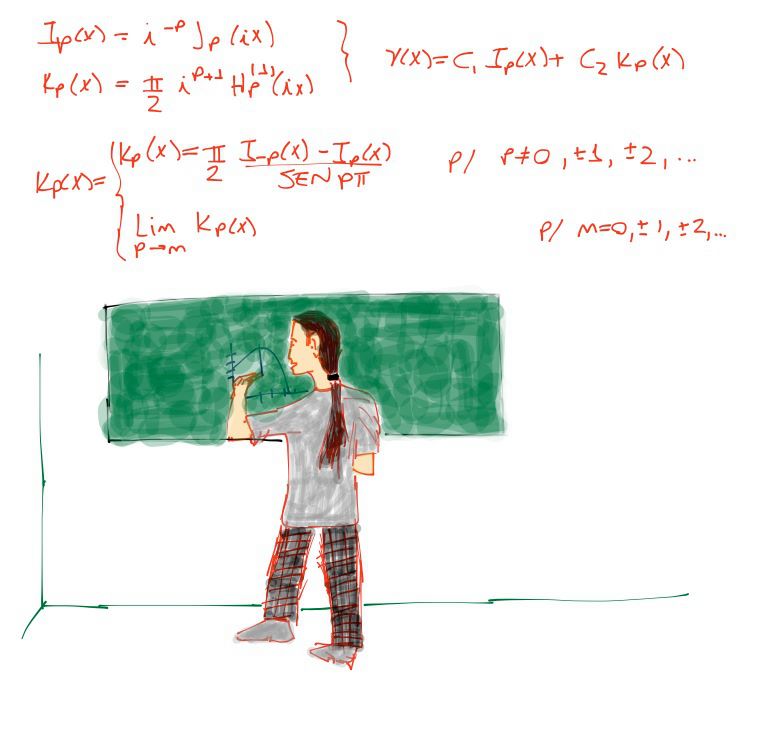 Ip(x) = i^-p Jp(ix)
Kp(x) = π/2 i^p+1 Hp^(1)(ix) } Y(x) = C1 Ip(x) + C2 Kp(x)
Kp(x) = { Kp(x) = π/2 I-p(x) - Ip(x) / SEN pπ p/ p≠0, ±1, ±2, ...
Lim p→m Kp(x) p/ m=0, ±1, ±2, ...